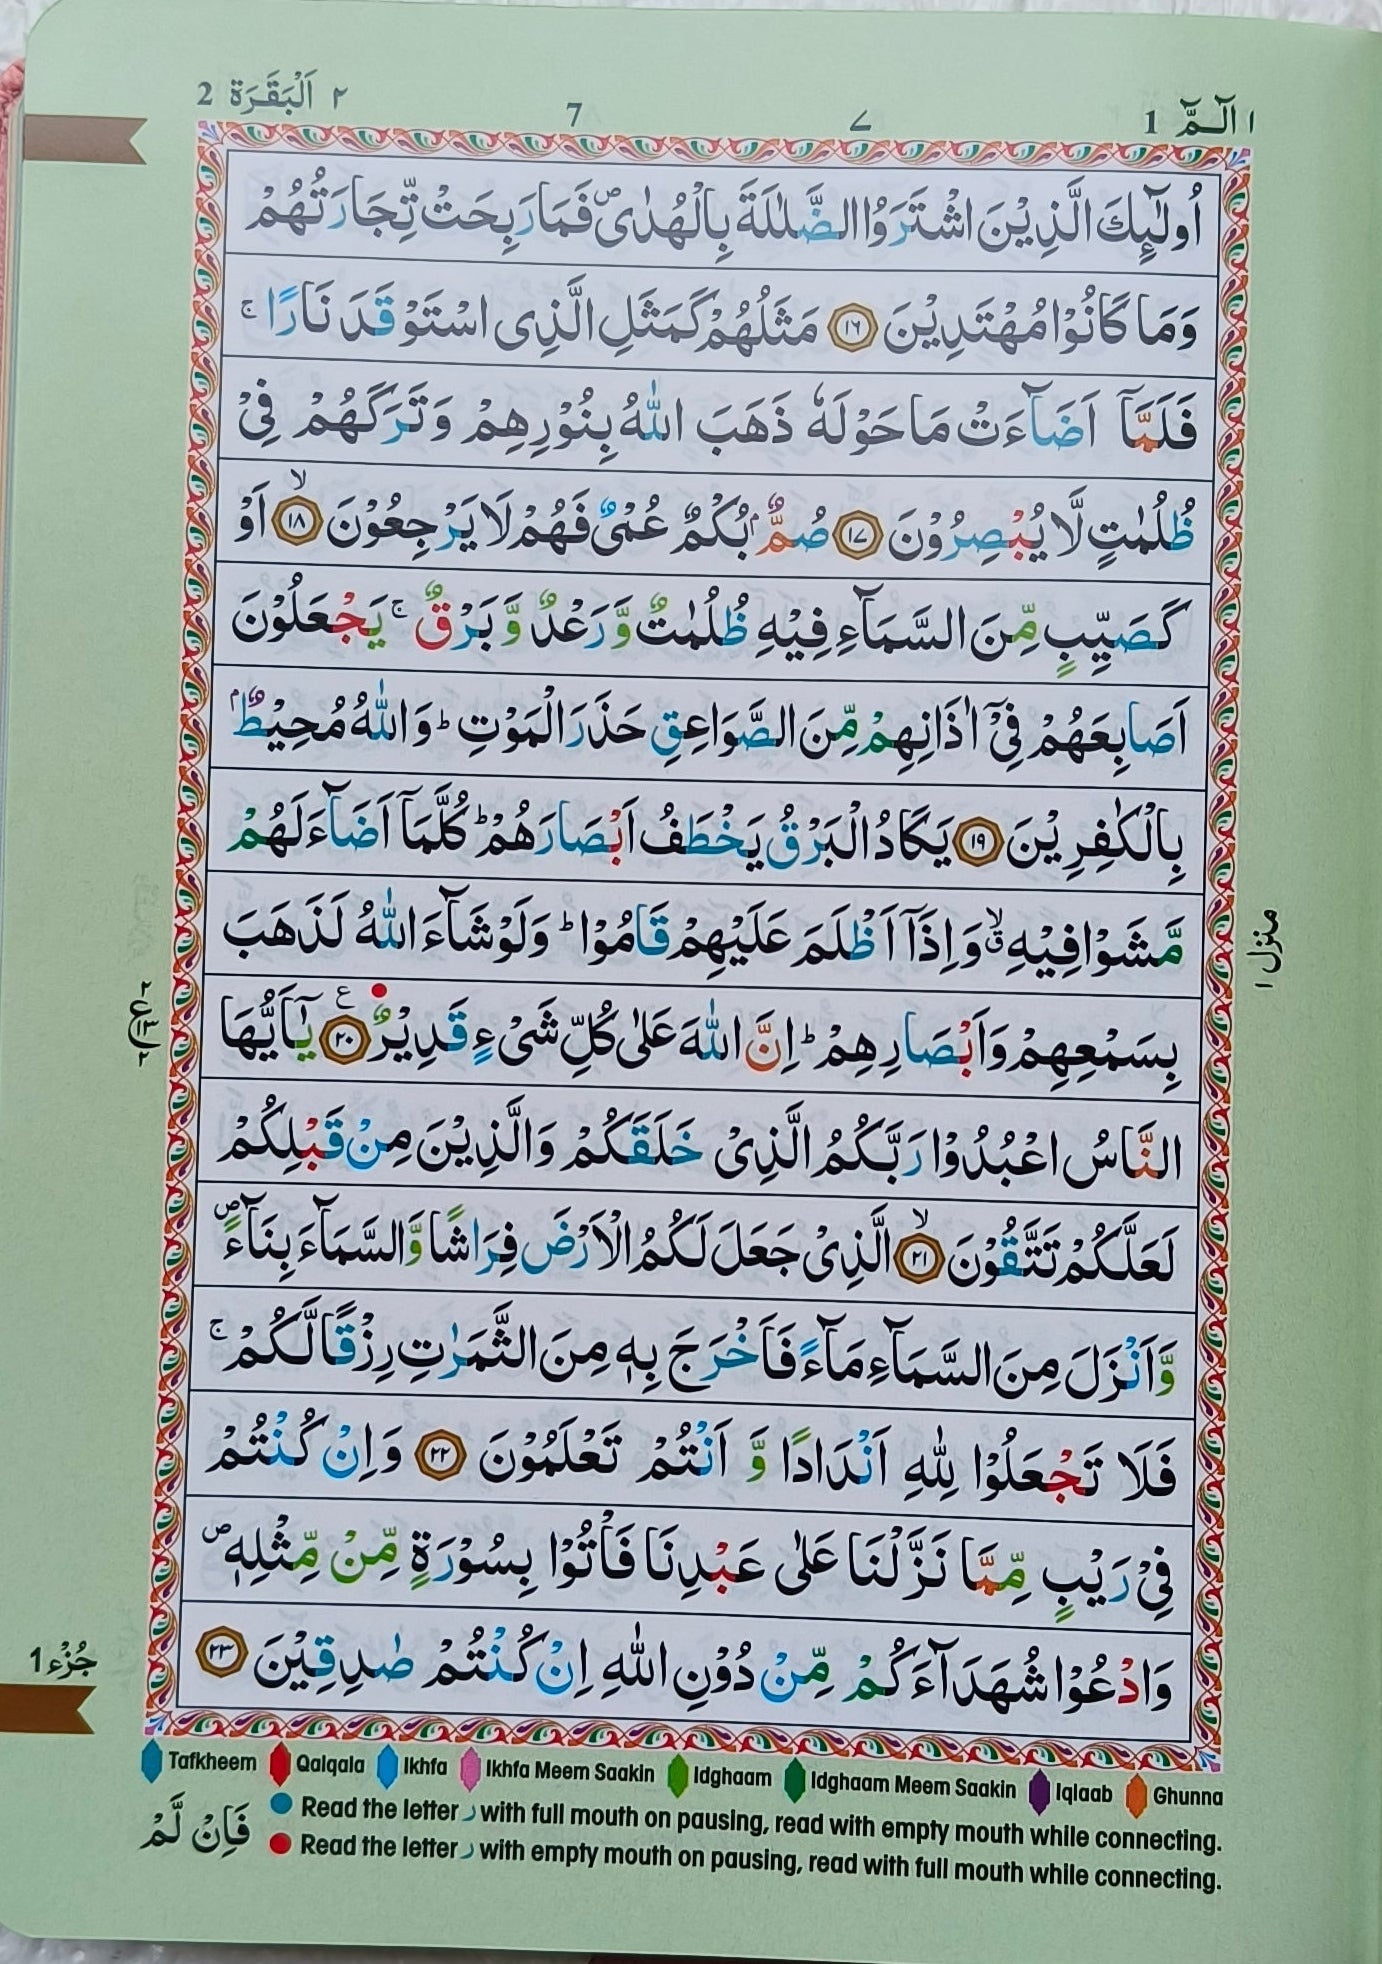 ١ الٓـمّٓ 1 ٧ 7 ٢ اَلْبَقَرَة 2
اُولٰٓئِكَ الَّذِيْنَ اشْتَرَوُا الضَّلٰلَةَ بِالْهُدٰى ۪ فَمَا رَبِحَتْ تِّجَارَتُهُمْ
وَمَا كَانُوْا مُهْتَدِيْنَ ١٦ مَثَلُهُمْ كَمَثَلِ الَّذِى اسْتَوْقَدَ نَارًا ۚ
فَلَمَّاۤ اَضَآءَتْ مَا حَوْلَهٗ ذَهَبَ اللّٰهُ بِنُوْرِهِمْ وَتَرَكَهُمْ فِىْ
ظُلُمٰتٍ لَّا يُبْصِرُوْنَ ١٧ صُمٌّۢ بُكْمٌ عُمْىٌ فَهُمْ لَا يَرْجِعُوْنَ ۙ ١٨ اَوْ
كَصَيِّبٍ مِّنَ السَّمَآءِ فِيْهِ ظُلُمٰتٌ وَّرَعْدٌ وَّبَرْقٌ ۚ يَجْعَلُوْنَ
اَصَابِعَهُمْ فِىْۤ اٰذَانِهِمْ مِّنَ الصَّوَاعِقِ حَذَرَ الْمَوْتِ ؕ وَاللّٰهُ مُحِيْطٌۢ
بِالْكٰفِرِيْنَ ١٩ يَكَادُ الْبَرْقُ يَخْطَفُ اَبْصَارَهُمْ ؕ كُلَّمَاۤ اَضَآءَ لَهُمْ
مَّشَوْا فِيْهِ ۙۗ وَاِذَاۤ اَظْلَمَ عَلَيْهِمْ قَامُوْا ؕ وَلَوْ شَآءَ اللّٰهُ لَذَهَبَ
بِسَمْعِهِمْ وَاَبْصَارِهِمْ ؕ اِنَّ اللّٰهَ عَلٰى كُلِّ شَىْءٍ قَدِيْرٌ ٢٠ ع يٰۤاَيُّهَا
النَّاسُ اعْبُدُوْا رَبَّكُمُ الَّذِىْ خَلَقَكُمْ وَالَّذِيْنَ مِنْ قَبْلِكُمْ
لَعَلَّكُمْ تَتَّقُوْنَ ۙ ٢١ الَّذِىْ جَعَلَ لَكُمُ الْاَرْضَ فِرَاشًا وَّالسَّمَآءَ بِنَآءً ۪
وَّاَنْزَلَ مِنَ السَّمَآءِ مَآءً فَاَخْرَجَ بِهٖ مِنَ الثَّمَرٰتِ رِزْقًا لَّكُمْ ۚ
فَلَا تَجْعَلُوْا لِلّٰهِ اَنْدَادًا وَّ اَنْتُمْ تَعْلَمُوْنَ ٢٢ وَاِنْ كُنْتُمْ
فِىْ رَيْبٍ مِّمَّا نَزَّلْنَا عَلٰى عَبْدِنَا فَاْتُوْا بِسُوْرَةٍ مِّنْ مِّثْلِهٖ ۪
وَادْعُوْا شُهَدَآءَكُمْ مِّنْ دُوْنِ اللّٰهِ اِنْ كُنْتُمْ صٰدِقِيْنَ ٢٣
منزل ١
٢ ع ١٣ ٢
جُزْء 1
Tafkheem Qalqala Ikhfa Ikhfa Meem Saakin Idghaam Idghaam Meem Saakin Iqlaab Ghunna
Read the letter ر with full mouth on pausing, read with empty mouth while connecting.
Read the letter ر with empty mouth on pausing, read with full mouth while connecting.
فَاِنْ لَّمْ